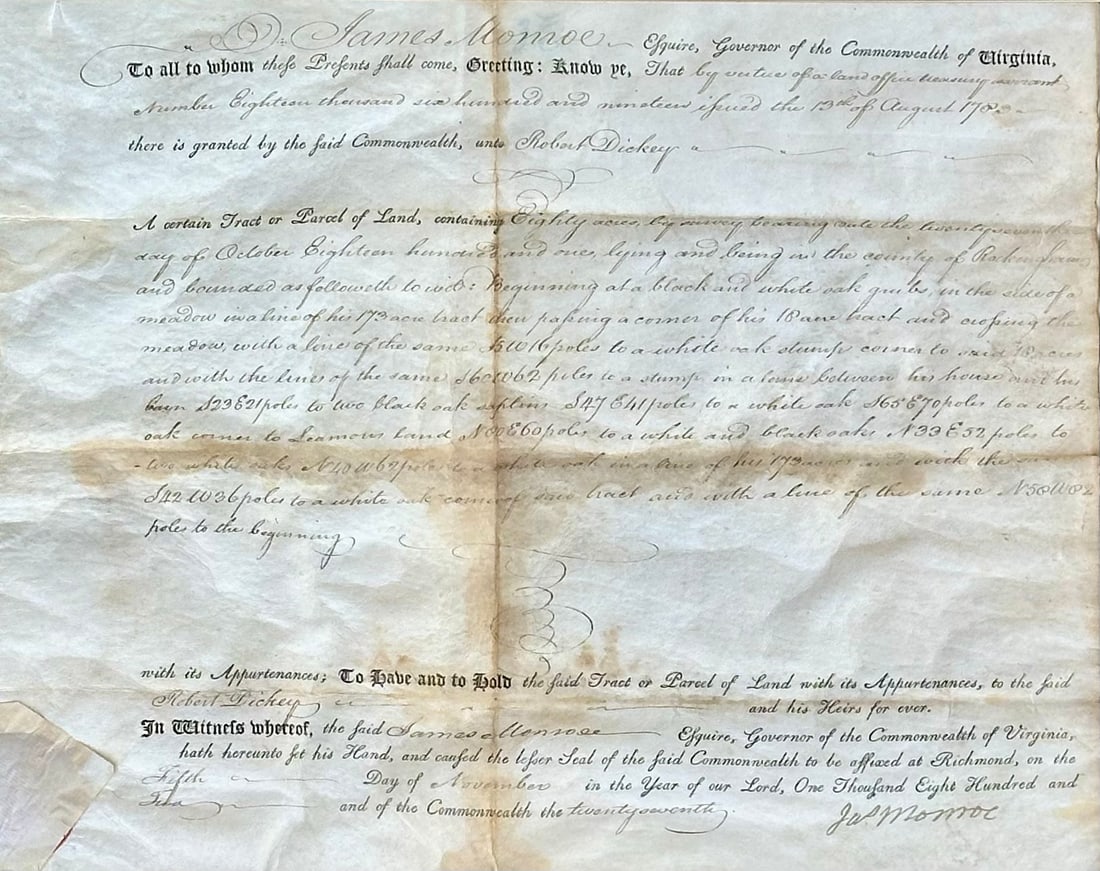 James Monroe Esquire, Governor of the Commonwealth of Virginia,
To all to whom theſe Preſents ſhall come, Greeting: Know ye, That by vertue of a land office treasury warrant
Number Eighteen thousand six hundred and nineteen iſsued the 12th of August 178
there is granted by the ſaid Commonwealth, unto Robert Dickey
A certain Tract or Parcel of Land, containing Eighty acres, by survey bearing date the twentyseventh
day of October Eighteen hundred and one, lying and being in the county of Rockingham
and bounded as followeth to wit: Beginning at a black and white oak grubs, in the side of a
meadow in a line of his 173 acre tract then paſsing a corner of his 18 acre tract and croſsing the
meadow, with a line of the same W 16 poles to a white oak stump corner to said 18 acres
and with the lines of the same S60W62 poles to a stump in a lane between his house and his
barn S23E21 poles to two black oak saplins S47E41 poles to a white oak S65E70 poles to a white
oak corner to Leamons land N80E60 poles to a white and black oaks N33E52 poles to
two white oaks N40W62 poles to a white oak in a line of his 173 acres and with the
S42W36 poles to a white oak corner of said tract and with a line of the same N58W82
poles to the beginning
with its Appurtenances; To Have and to Hold the ſaid Tract or Parcel of Land with its Appurtenances, to the ſaid
Robert Dickey and his Heirs for ever.
In Witneſs whereof, the ſaid James Monroe Eſquire, Governor of the Commonwealth of Virginia,
hath hereunto ſet his Hand, and cauſed the leſſer Seal of the ſaid Commonwealth to be affixed at Richmond, on the
Fifth Day of November in the Year of our Lord, One Thouſand Eight Hundred and
Two and of the Commonwealth the twentyseventh.
Jas Monroe